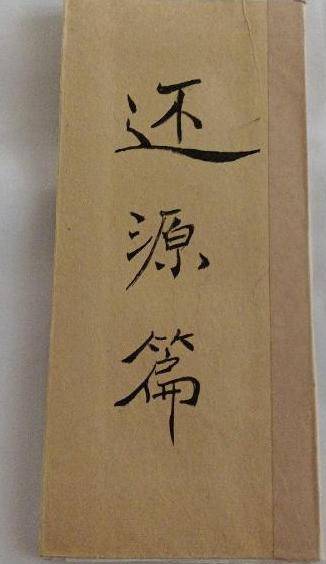 还源篇